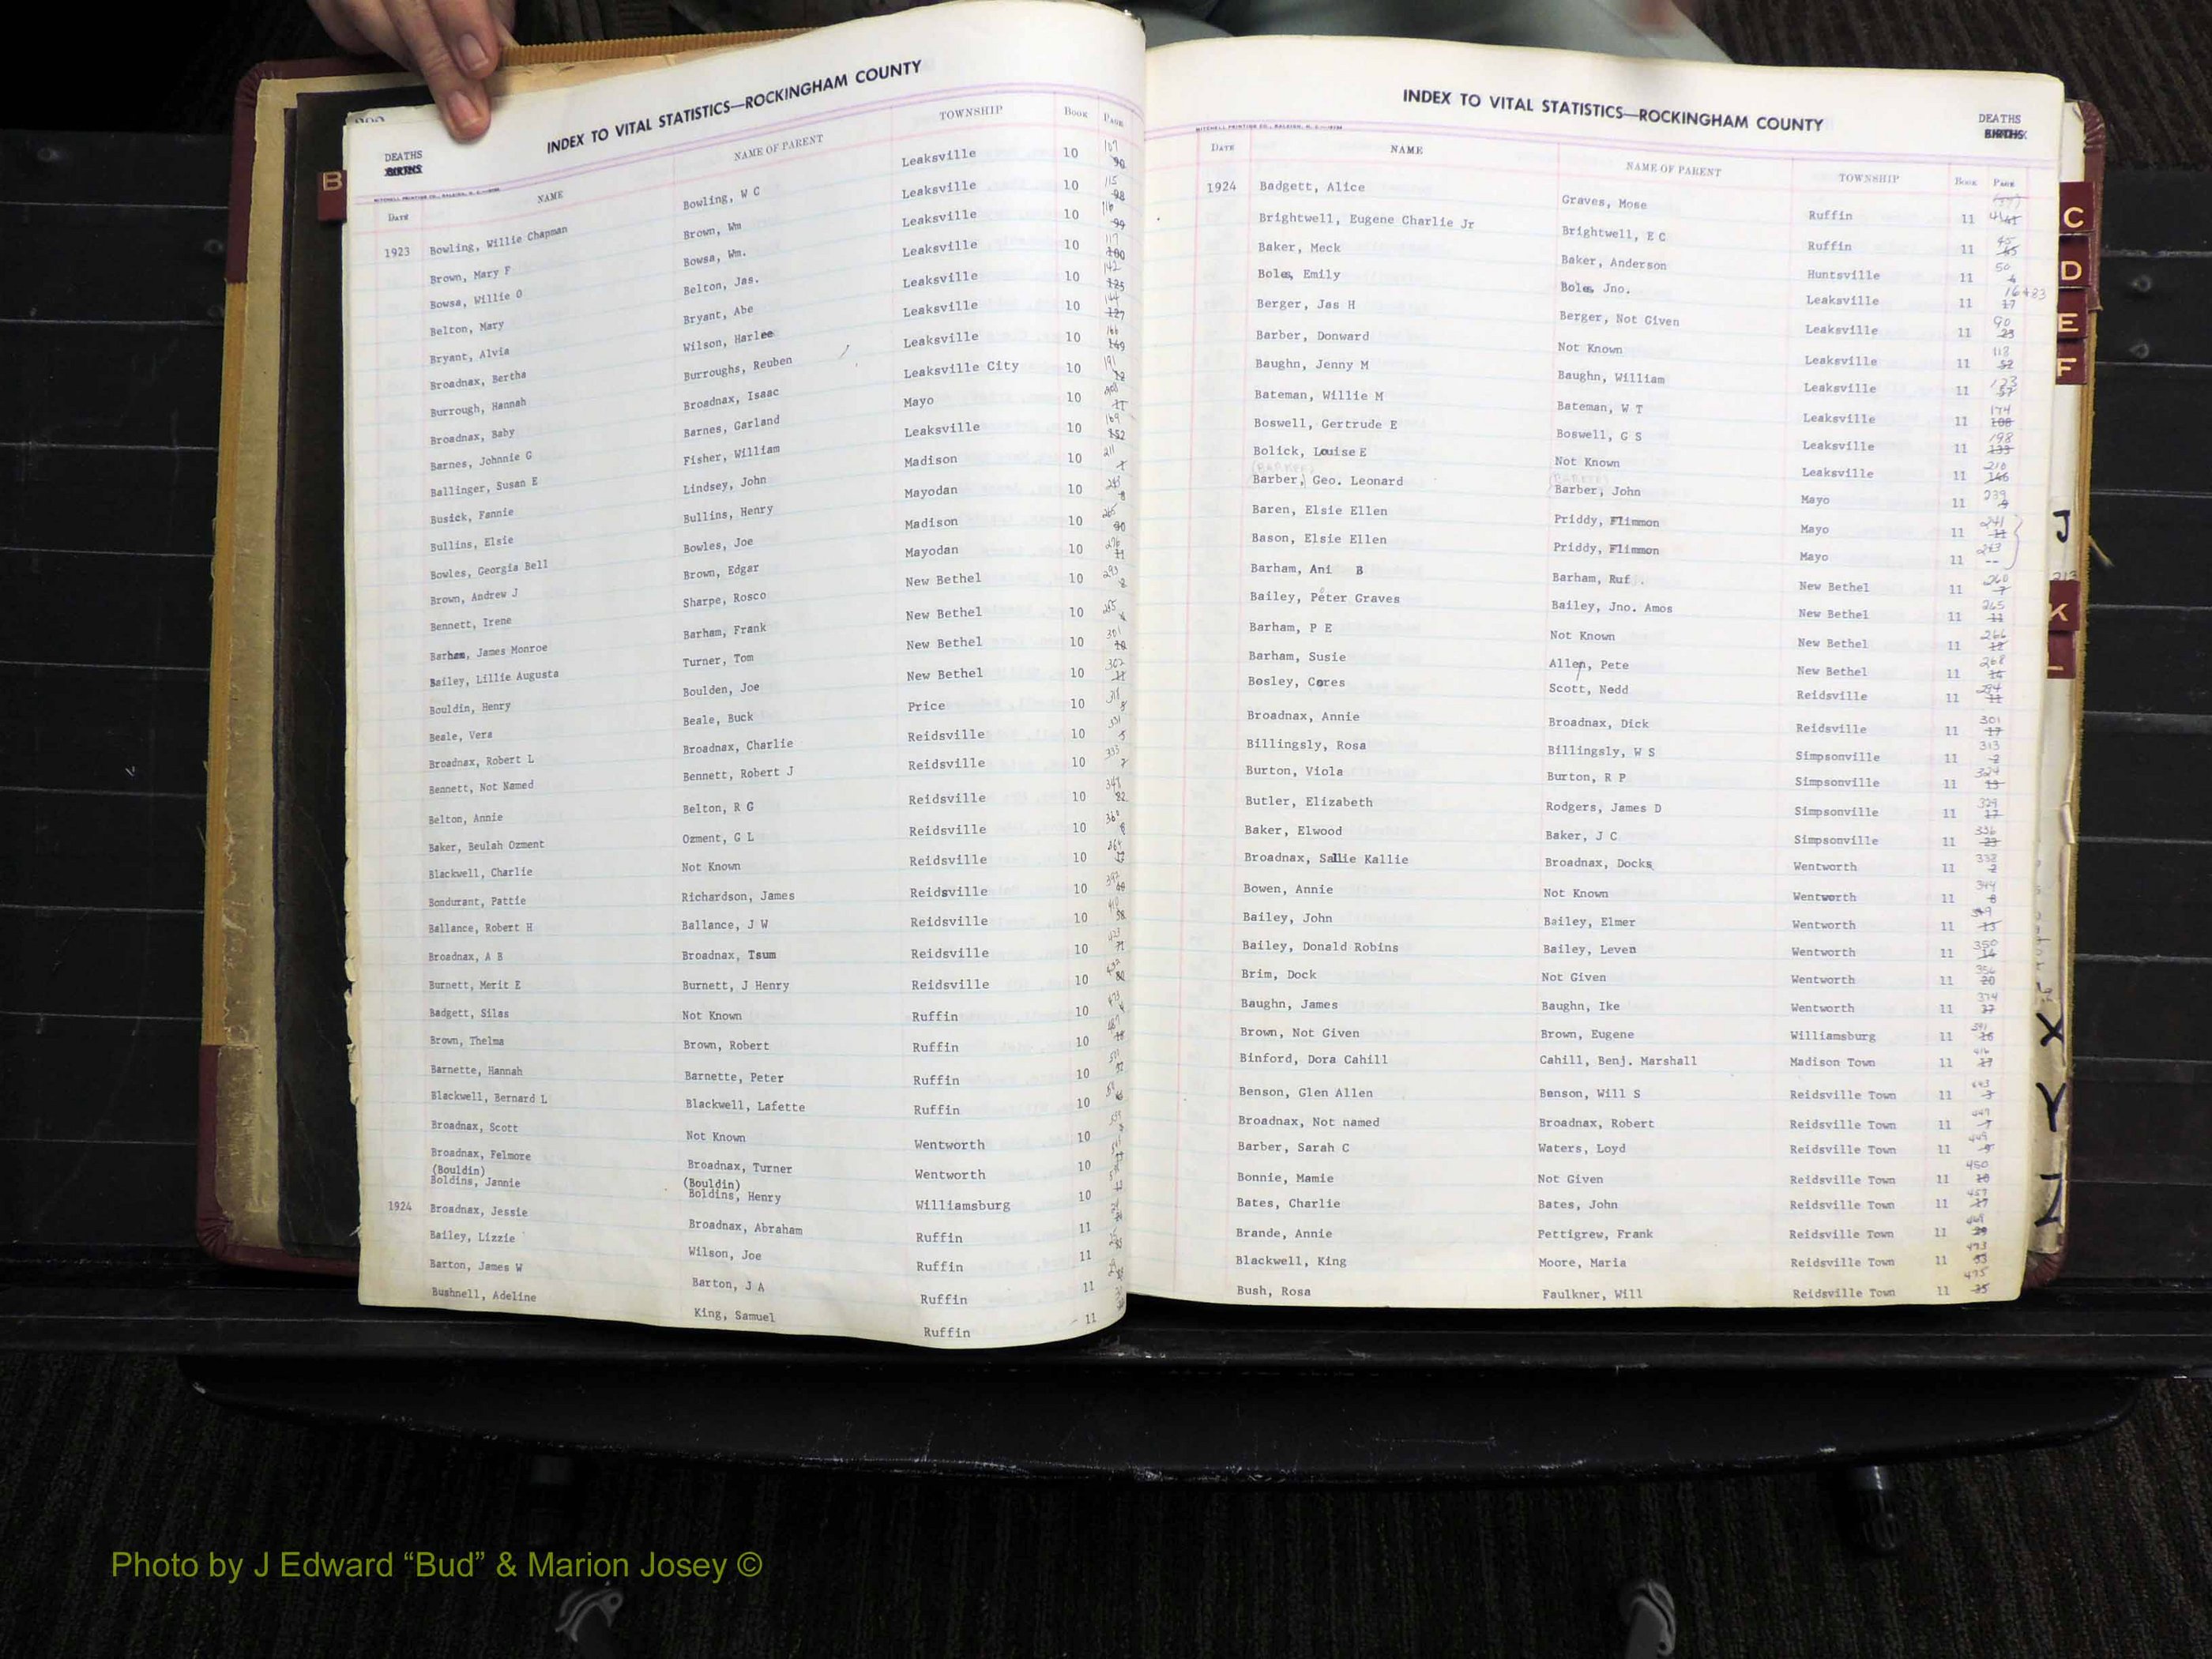 INDEX TO VITAL STATISTICS—ROCKINGHAM COUNTY
DEATHS
BIRTHS
DATE NAME NAME OF PARENT TOWNSHIP BOOK PAGE
1923 Bowling, Willie Chapman Bowling, W C Leaksville 10 107
Brown, Mary F Brown, Wm Leaksville 10 115
Bowsa, Willie O Bowsa, Wm. Leaksville 10 116
Belton, Mary Belton, Jas. Leaksville 10 117
Bryant, Alvia Bryant, Abe Leaksville 10 142
Broadnax, Bertha Wilson, Harlee Leaksville 10 144
Burrough, Hannah Burroughs, Reuben Leaksville 10 166
Broadnax, Baby Broadnax, Isaac Leaksville City 10 191
Barnes, Johnnie G Barnes, Garland Mayo 10
Ballinger, Susan E Fisher, William Leaksville 10 169
Busick, Fannie Lindsey, John Madison 10 211
Bullins, Elsie Bullins, Henry Mayodan 10
Bowles, Georgia Bell Bowles, Joe Madison 10
Brown, Andrew J Brown, Edgar Mayodan 10
Bennett, Irene Sharpe, Rosco New Bethel 10
Barham, James Monroe Barham, Frank New Bethel 10
Bailey, Lillie Augusta Turner, Tom New Bethel 10 301
Bouldin, Henry Boulden, Joe New Bethel 10 302
Beale, Vera Beale, Buck Price 10
Broadnax, Robert L Broadnax, Charlie Reidsville 10
Bennett, Not Named Bennett, Robert J Reidsville 10
Belton, Annie Belton, R G Reidsville 10
Baker, Beulah Ozment Ozment, G L Reidsville 10
Blackwell, Charlie Not Known Reidsville 10
Bondurant, Pattie Richardson, James Reidsville 10
Ballance, Robert H Ballance, J W Reidsville 10
Broadnax, A B Broadnax, Tsum Reidsville 10
Burnett, Merit E Burnett, J Henry Reidsville 10
Badgett, Silas Not Known Ruffin 10
Brown, Thelma Brown, Robert Ruffin 10
Barnette, Hannah Barnette, Peter Ruffin 10
Blackwell, Bernard L Blackwell, Lafette Ruffin 10
Broadnax, Scott Not Known Wentworth 10
Broadnax, Felmore Broadnax, Turner Wentworth 10
(Bouldin) (Bouldin)
Boldins, Jannie Boldins, Henry Williamsburg 10
1924 Broadnax, Jessie Broadnax, Abraham Ruffin 11
Bailey, Lizzie Wilson, Joe Ruffin 11
Barton, James W Barton, J A Ruffin 11
Bushnell, Adeline King, Samuel Ruffin 11
INDEX TO VITAL STATISTICS—ROCKINGHAM COUNTY
DEATHS
BIRTHS
DATE NAME NAME OF PARENT TOWNSHIP BOOK PAGE
1924 Badgett, Alice Graves, Mose Ruffin 11 41
Brightwell, Eugene Charlie Jr Brightwell, E C Ruffin 11 45
Baker, Meck Baker, Anderson Huntsville 11 50
Boles, Emily Boles, Jno. Leaksville 11 17
Berger, Jas H Berger, Not Given Leaksville 11 90 23
Barber, Donward Not Known Leaksville 11 118 52
Baughn, Jenny M Baughn, William Leaksville 11 123 57
Bateman, Willie M Bateman, W T Leaksville 11 174 108
Boswell, Gertrude E Boswell, G S Leaksville 11 198 133
Bolick, Louise E Not Known Leaksville 11 210 146
(BARKER) (BARKER)
Barber, Geo. Leonard Barber, John Mayo 11 239 9
Baren, Elsie Ellen Priddy, Flimmon Mayo 11 241 11
Bason, Elsie Ellen Priddy, Flimmon Mayo 11 243 --
Barham, Ani B Barham, Ruf . New Bethel 11 260 7
Bailey, Peter Graves Bailey, Jno. Amos New Bethel 11 265 11
Barham, P E Not Known New Bethel 11 266 12
Barham, Susie Allen, Pete New Bethel 11 268 14
Bosley, Cores Scott, Nedd Reidsville 11 294 11
Broadnax, Annie Broadnax, Dick Reidsville 11 301 17
Billingsly, Rosa Billingsly, W S Simpsonville 11 313 2
Burton, Viola Burton, R P Simpsonville 11 324 13
Butler, Elizabeth Rodgers, James D Simpsonville 11 329 17
Baker, Elwood Baker, J C Simpsonville 11 336 23
Broadnax, Sallie Kallie Broadnax, Docks Wentworth 11 338 2
Bowen, Annie Not Known Wentworth 11 344 8
Bailey, John Bailey, Elmer Wentworth 11 349 13
Bailey, Donald Robins Bailey, Leven Wentworth 11 350 14
Brim, Dock Not Given Wentworth 11 356 20
Baughn, James Baughn, Ike Wentworth 11 374 37
Brown, Not Given Brown, Eugene Williamsburg 11 391 16
Binford, Dora Cahill Cahill, Benj. Marshall Madison Town 11 416 17
Benson, Glen Allen Benson, Will S Reidsville Town 11 443 3
Broadnax, Not named Broadnax, Robert Reidsville Town 11 447 7
Barber, Sarah C Waters, Loyd Reidsville Town 11 449 9
Bonnie, Mamie Not Given Reidsville Town 11 450 10
Bates, Charlie Bates, John Reidsville Town 11 457 17
Brande, Annie Pettigrew, Frank Reidsville Town 11 469 29
Blackwell, King Moore, Maria Reidsville Town 11 473 33
Bush, Rosa Faulkner, Will Reidsville Town 11 475 35
B
C
D
E
F
J
K
L
X
Y
Z
Photo by J Edward “Bud” & Marion Josey ©